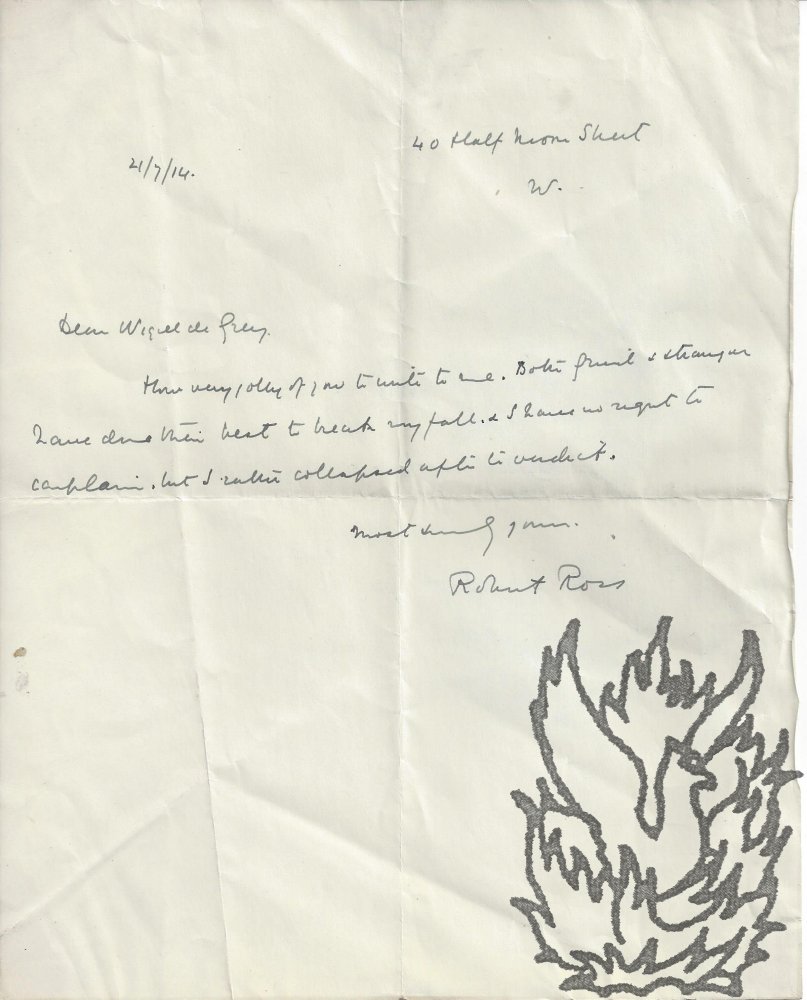 40 Half Moon Street
W.
21/7/14.
Dear Wigel de Grey.
How very jolly of you to write to me. Both friend & stranger
have done their best to break my fall. & I have no right to
complain. but I rather collapsed after the verdict.
Most sincerely yours.
Robert Ross